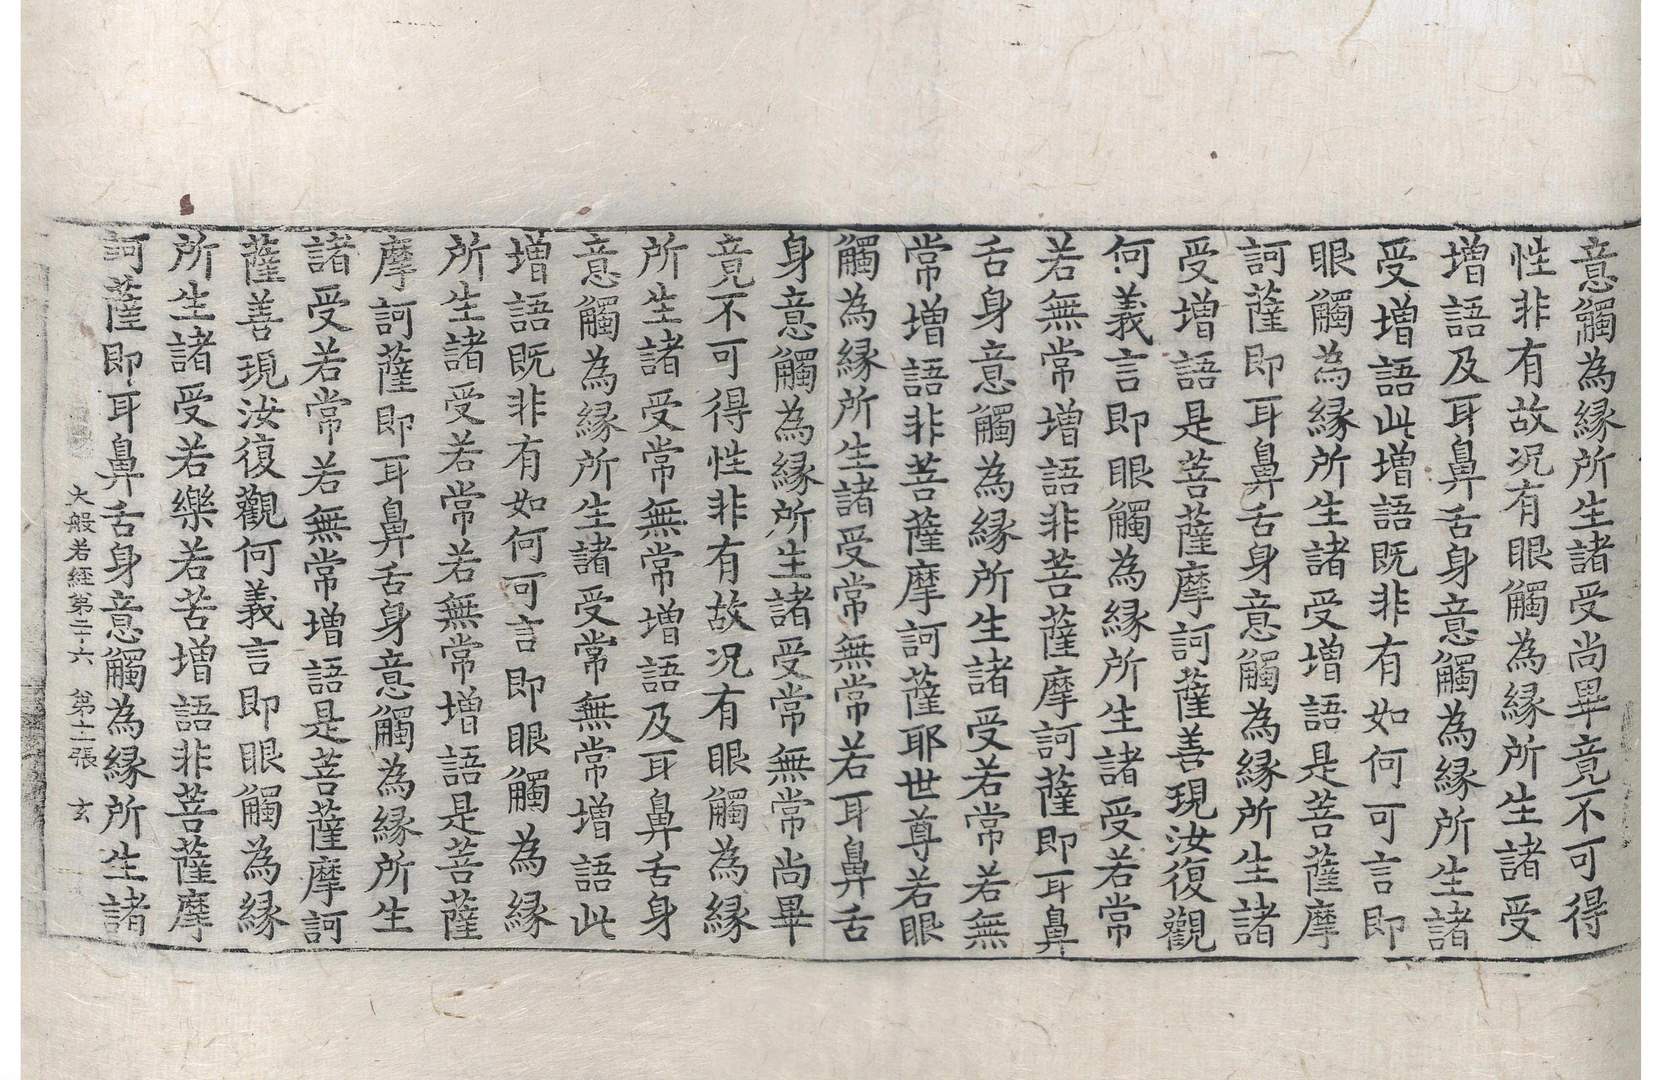 意觸為縁所生諸受尚畢竟不可得
性非有故况有眼觸為縁所生諸受
增語及耳鼻舌身意觸為縁所生諸
受增語此增語既非有如何可言即
眼觸為縁所生諸受增語是菩薩摩
訶薩即耳鼻舌身意觸為縁所生諸
受增語是菩薩摩訶薩善現汝復觀
何義言即眼觸為縁所生諸受若常
若無常增語非菩薩摩訶薩即耳鼻
舌身意觸為縁所生諸受若常若無
常增語非菩薩摩訶薩耶世尊若眼
觸為縁所生諸受常無常若耳鼻舌
身意觸為縁所生諸受常無常尚畢
竟不可得性非有故况有眼觸為縁
所生諸受常無常增語及耳鼻舌身
意觸為縁所生諸受常無常增語此
增語既非有如何可言即眼觸為縁
所生諸受若常若無常增語是菩薩
摩訶薩即耳鼻舌身意觸為縁所生
諸受若常若無常增語是菩薩摩訶
薩善現汝復觀何義言即眼觸為縁
所生諸受若樂若苦增語非菩薩摩
訶薩即耳鼻舌身意觸為縁所生諸
大般若經第二十六 第十二張 玄